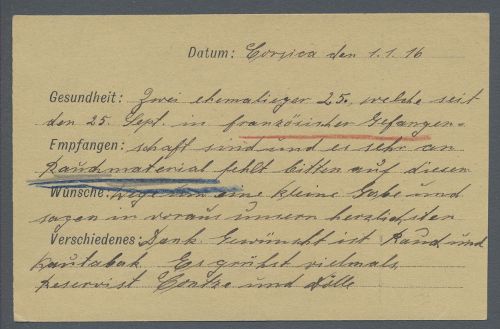 Datum: Corsica den 1.1.16
Gesundheit: Zwei ehemalieger 25., welche seit
den 25. Sept. in französischer Gefangen-
Empfangen: schaft sind und es sehr an
Rauchmaterial fehlt bitten auf diesen
Wünsche: Wege um eine kleine Gabe und
sagen in voraus unsern herzlichsten
Verschiedenes: Dank. Gewünscht ist Rauch und
Kautabak. Es grüßt vielmals
Reservist und Dölle